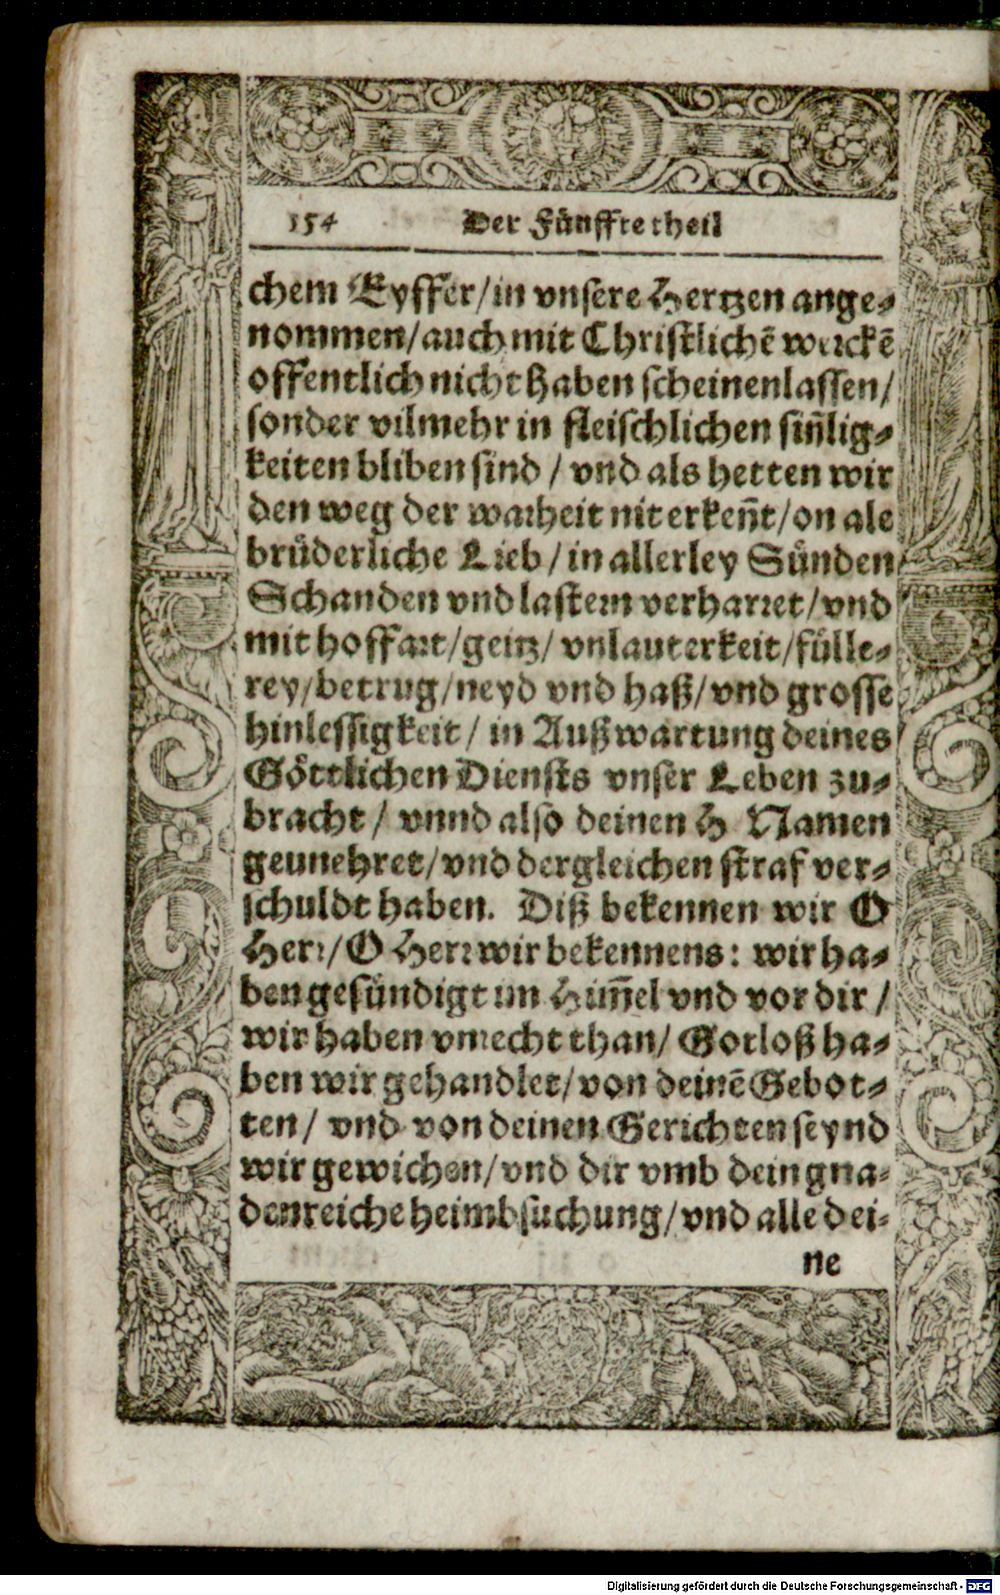 154 Der Fünffte theil
chem Eyffer/in vnsere Hertzen ange-
nommen/auch mit Christlichē werckē
offentlich nicht haben scheinen lassen/
sonder vilmehr in fleischlichen sin̄lig-
keiten bliben sind / vnd als hetten wir
den weg der warheit nit erken̄t/on ale
brüderliche Lieb / in allerley Sünden
Schanden vnd lastern verharret/vnd
mit hoffart/geitz/ vnlauterkeit/fülle-
rey/betrug/neyd vnd haß/vnd grosse
hinlessigkeit / in Außwartung deines
Göttlichen Diensts vnser Leben zu-
bracht / vnnd also deinen H Namen
geunehret/vnd dergleichen straf ver-
schuldt haben. Diß bekennen wir O
Herr/O Herr wir bekennens: wir ha-
ben gesündigt im Him̄el vnd vor dir /
wir haben vnrecht than/ Gotloß ha-
ben wir gehandlet/von deinē Gebot-
ten/ vnd von deinen Gerichten seynd
wir gewichen/vnd dir vmb dein gna-
denreiche heimbsuchung/vnd alle dei-
ne
Digitalisierung gefördert durch die Deutsche Forschungsgemeinschaft - DFG